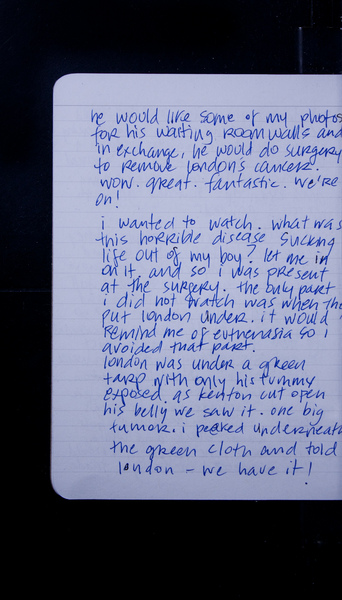 he would like some of my photos
for his waiting room walls and
in exchange, he would do surgery
to remove london's cancer.
wow. great. fantastic. we're
on!
i wanted to watch. what was
this horrible disease sucking
life out of my boy? let me in
on it. and so i was present
at the surgery. the only part
i did not watch was when the
put london under. it would
remind me of euthenasia so i
avoided that part.
london was under a green
tarp with only his tummy
exposed. as kenton cut open
his belly we saw it. one big
tumor. i peeked underneath
the green cloth and told
london - we have it!